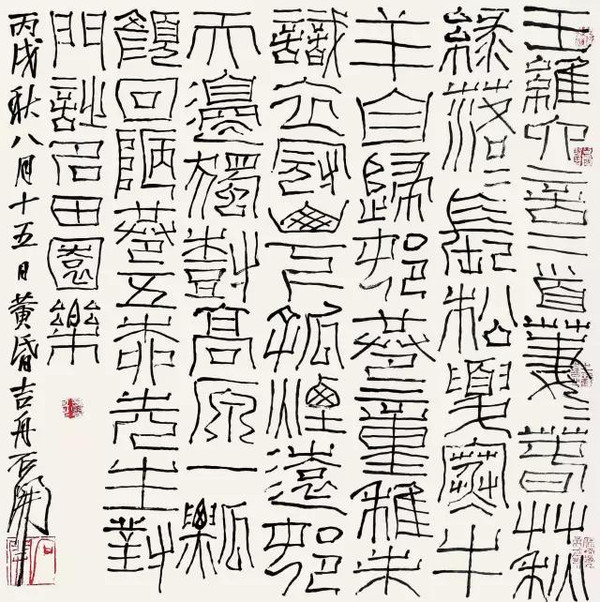 王維六言二首萋=春艸秋
綠落=長松夏寒牛
羊自歸邨巷童稚未
識衣冠山下孤煙遠邨
天邊獨樹高原一瓢
顏回陋巷五柳先生對
門詩名田園樂
丙戌秋八月十五日黃昏吉舟石開